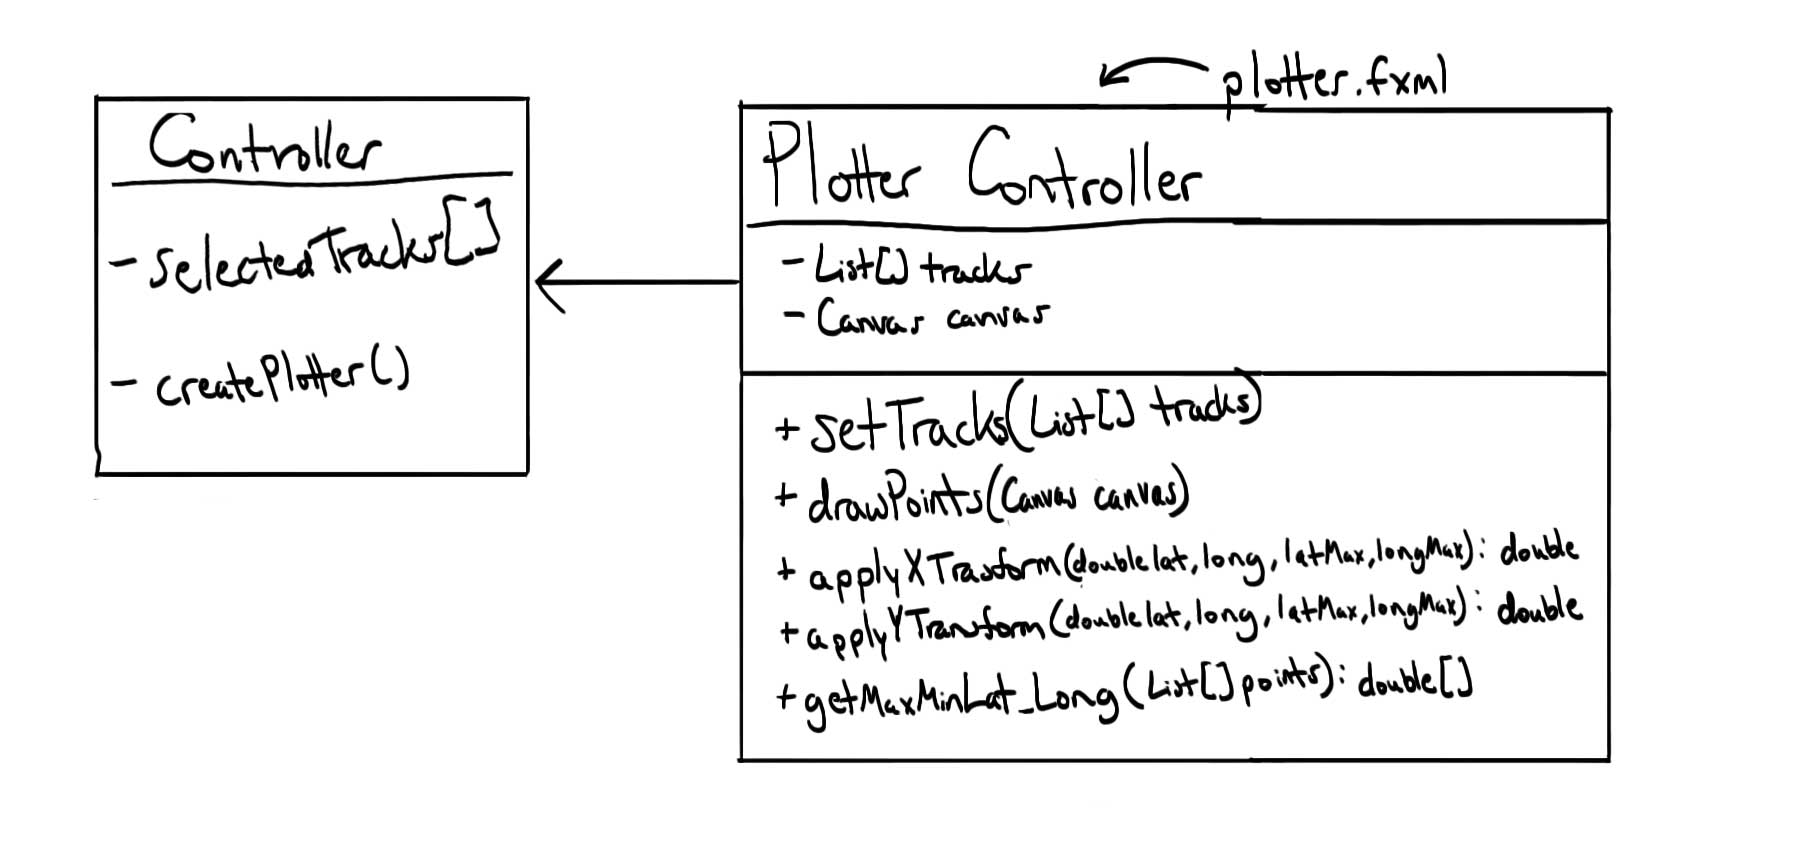 Controller
- selectedTracks[]
- createPlotter()
plotter.fxml
Plotter Controller
- List[] tracks
- Canvas canvas
+ setTracks(List[] tracks)
+ drawPoints(Canvas canvas)
+ applyXTrasform(double lat, long, latMax, longMax): double
+ applyYTransform(double lat, long, latMax, longMax): double
+ getMaxMinLat_Long(List[] points): double[]